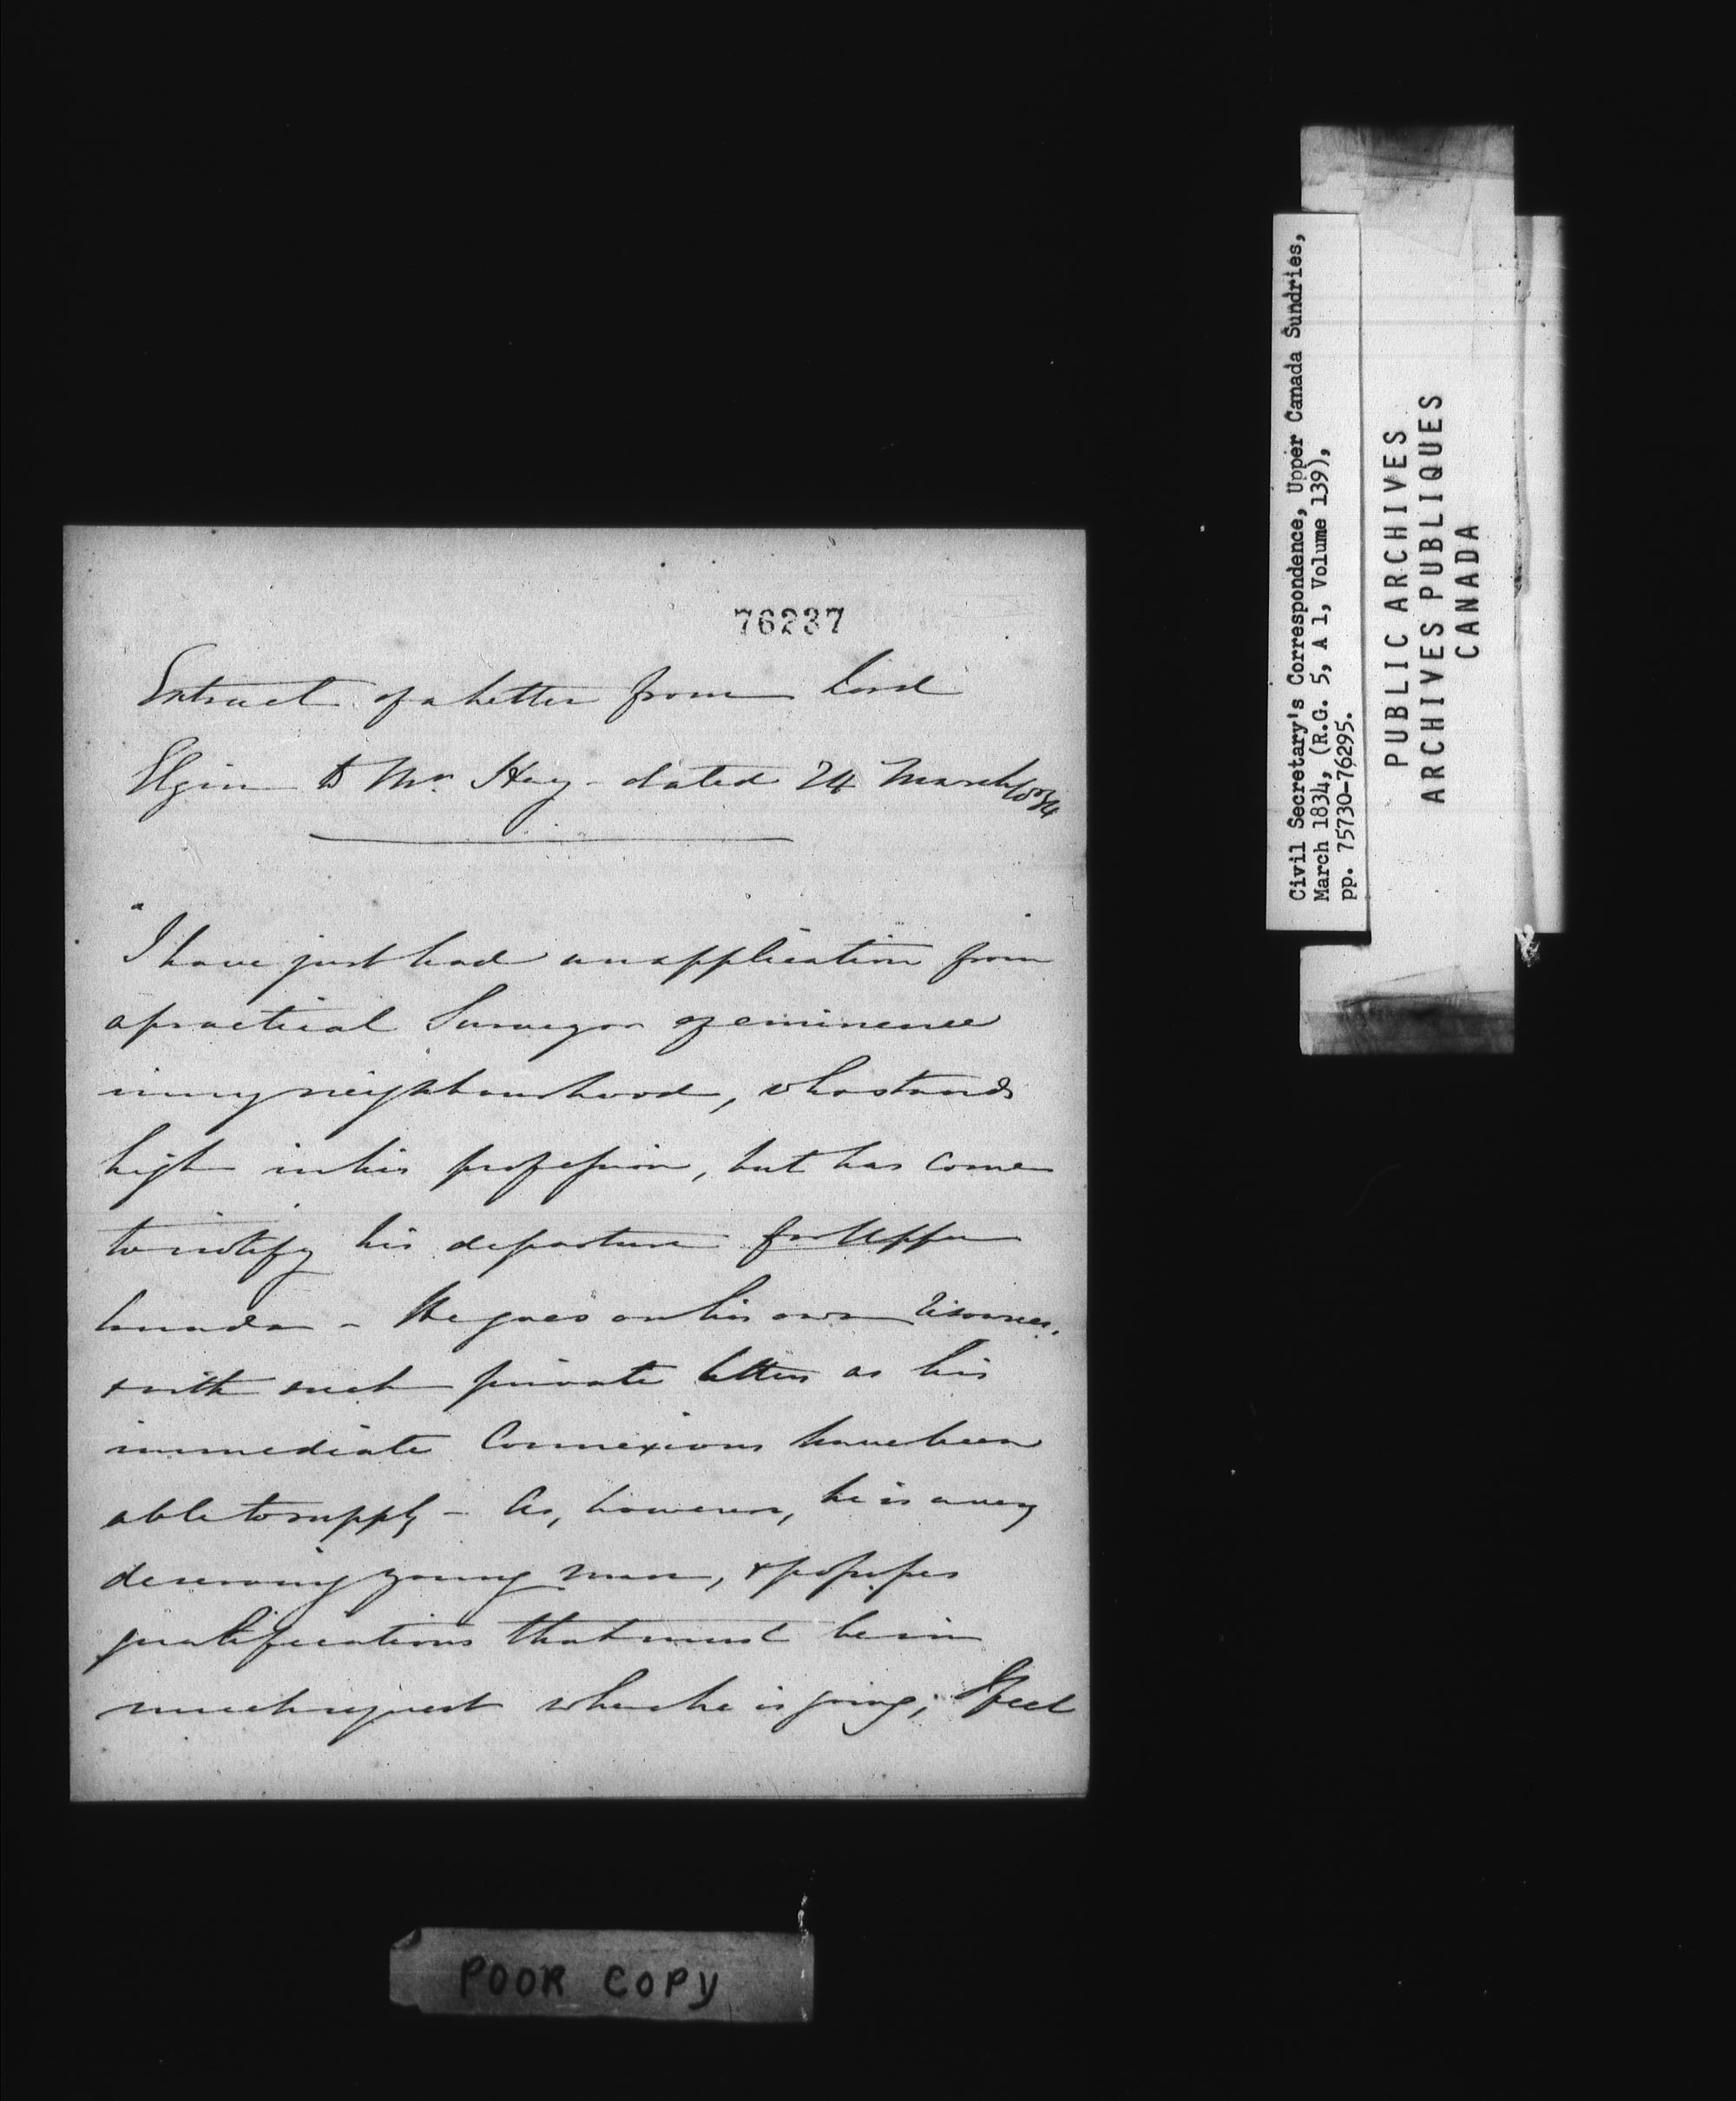 76237
Extract of a Letter from Lord
Elgin to Mr. Hay - dated 24 March 1834
"I have just had an application from
a practical Surveyor of eminence
in my neighbourhood, who stands
high in his profession, but has come
to notify his departure for Upper
Canada - He goes on his own resources,
& with such private letters as his
immediate Connexions have been
able to supply - As, however, he is a very
deserving young man, & possesses
qualifications that must be in
much request where he is going; I feel
POOR COPY
Civil Secretary's Correspondence, Upper Canada Sundries,
March 1834, (R.G. 5, A 1, Volume 139),
pp. 75730-76295.
PUBLIC ARCHIVES
ARCHIVES PUBLIQUES
CANADA